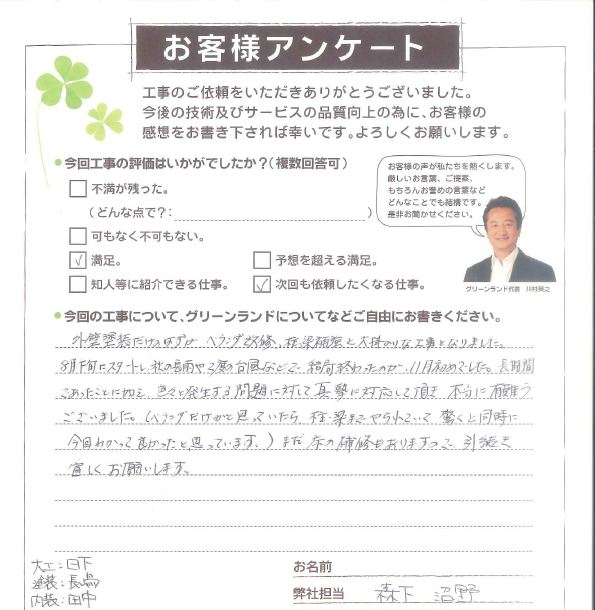 お客様アンケート
工事のご依頼をいただきありがとうございました。
今後の技術及びサービスの品質向上の為に、お客様の
感想をお書き下されば幸いです。よろしくお願いします。
●今回工事の評価はいかがでしたか?(複数回答可)
不満が残った。
(どんな点で?: )
可もなく不可もない。
✓ 満足。 予想を超える満足。
知人等に紹介できる仕事。 ✓ 次回も依頼したくなる仕事。
お客様の声が私たちを熱くします。
厳しいお言葉、ご提案、
もちろんお誉めの言葉など
どんなことでも結構です。
是非お聞かせください。
グリーンランド代表 川村英之
●今回の工事について、グリーンランドについてなどご自由にお書きください。
外壁塗装だけのはずが ベランダ改修、柱・梁補強と大掛かりな工事となりました。
8月下旬にスタートし、秋の長雨や2度の台風などで、結局終わったのが、11月初めでした。長期間
であったことに加え、色々と発生する問題に対して真摯に対応して頂き 本当に有難う
ございました。(ベランダだけかと思っていたら 柱・梁までやられていて 驚くと同時に
今回わかって良かったと思っています。)まだ床の補修もありますので、引続き
宜しくお願いします。
大工:日下
塗装:長島
内装:田中
お名前
弊社担当 森下 沼野